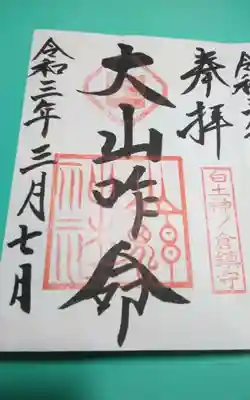 奉拝
白土神ノ倉鎮守
大山咋命
令和三年三月七日